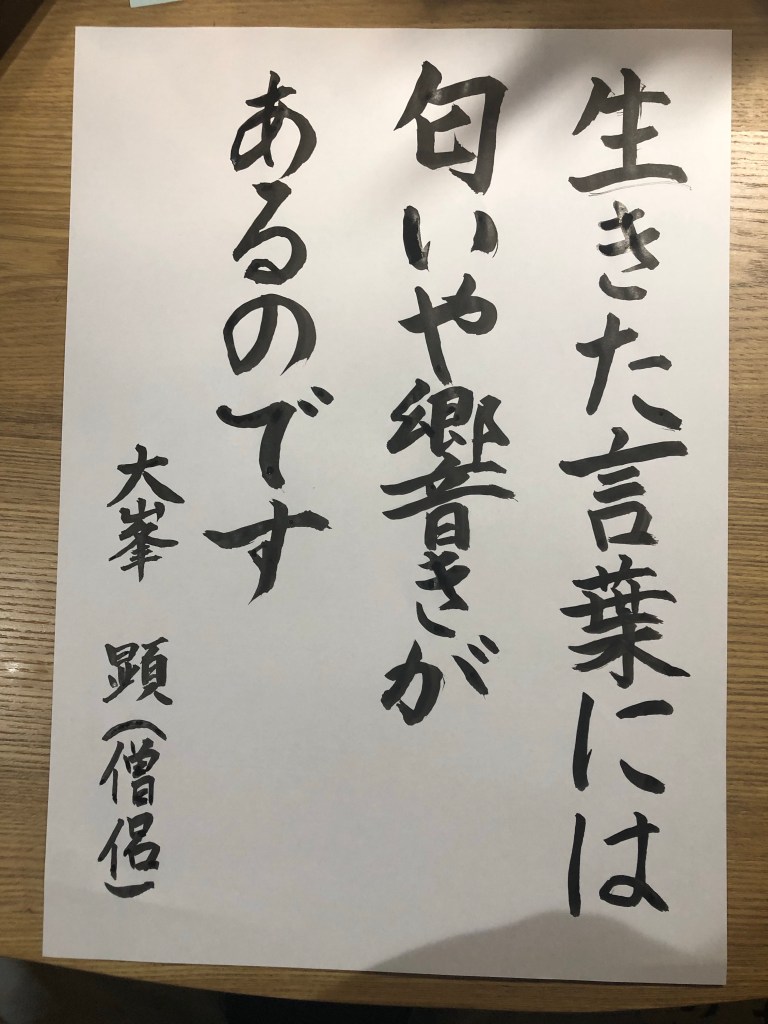 生きた言葉には
匂いや響きが
あるのです
大峯 顕（僧侶）